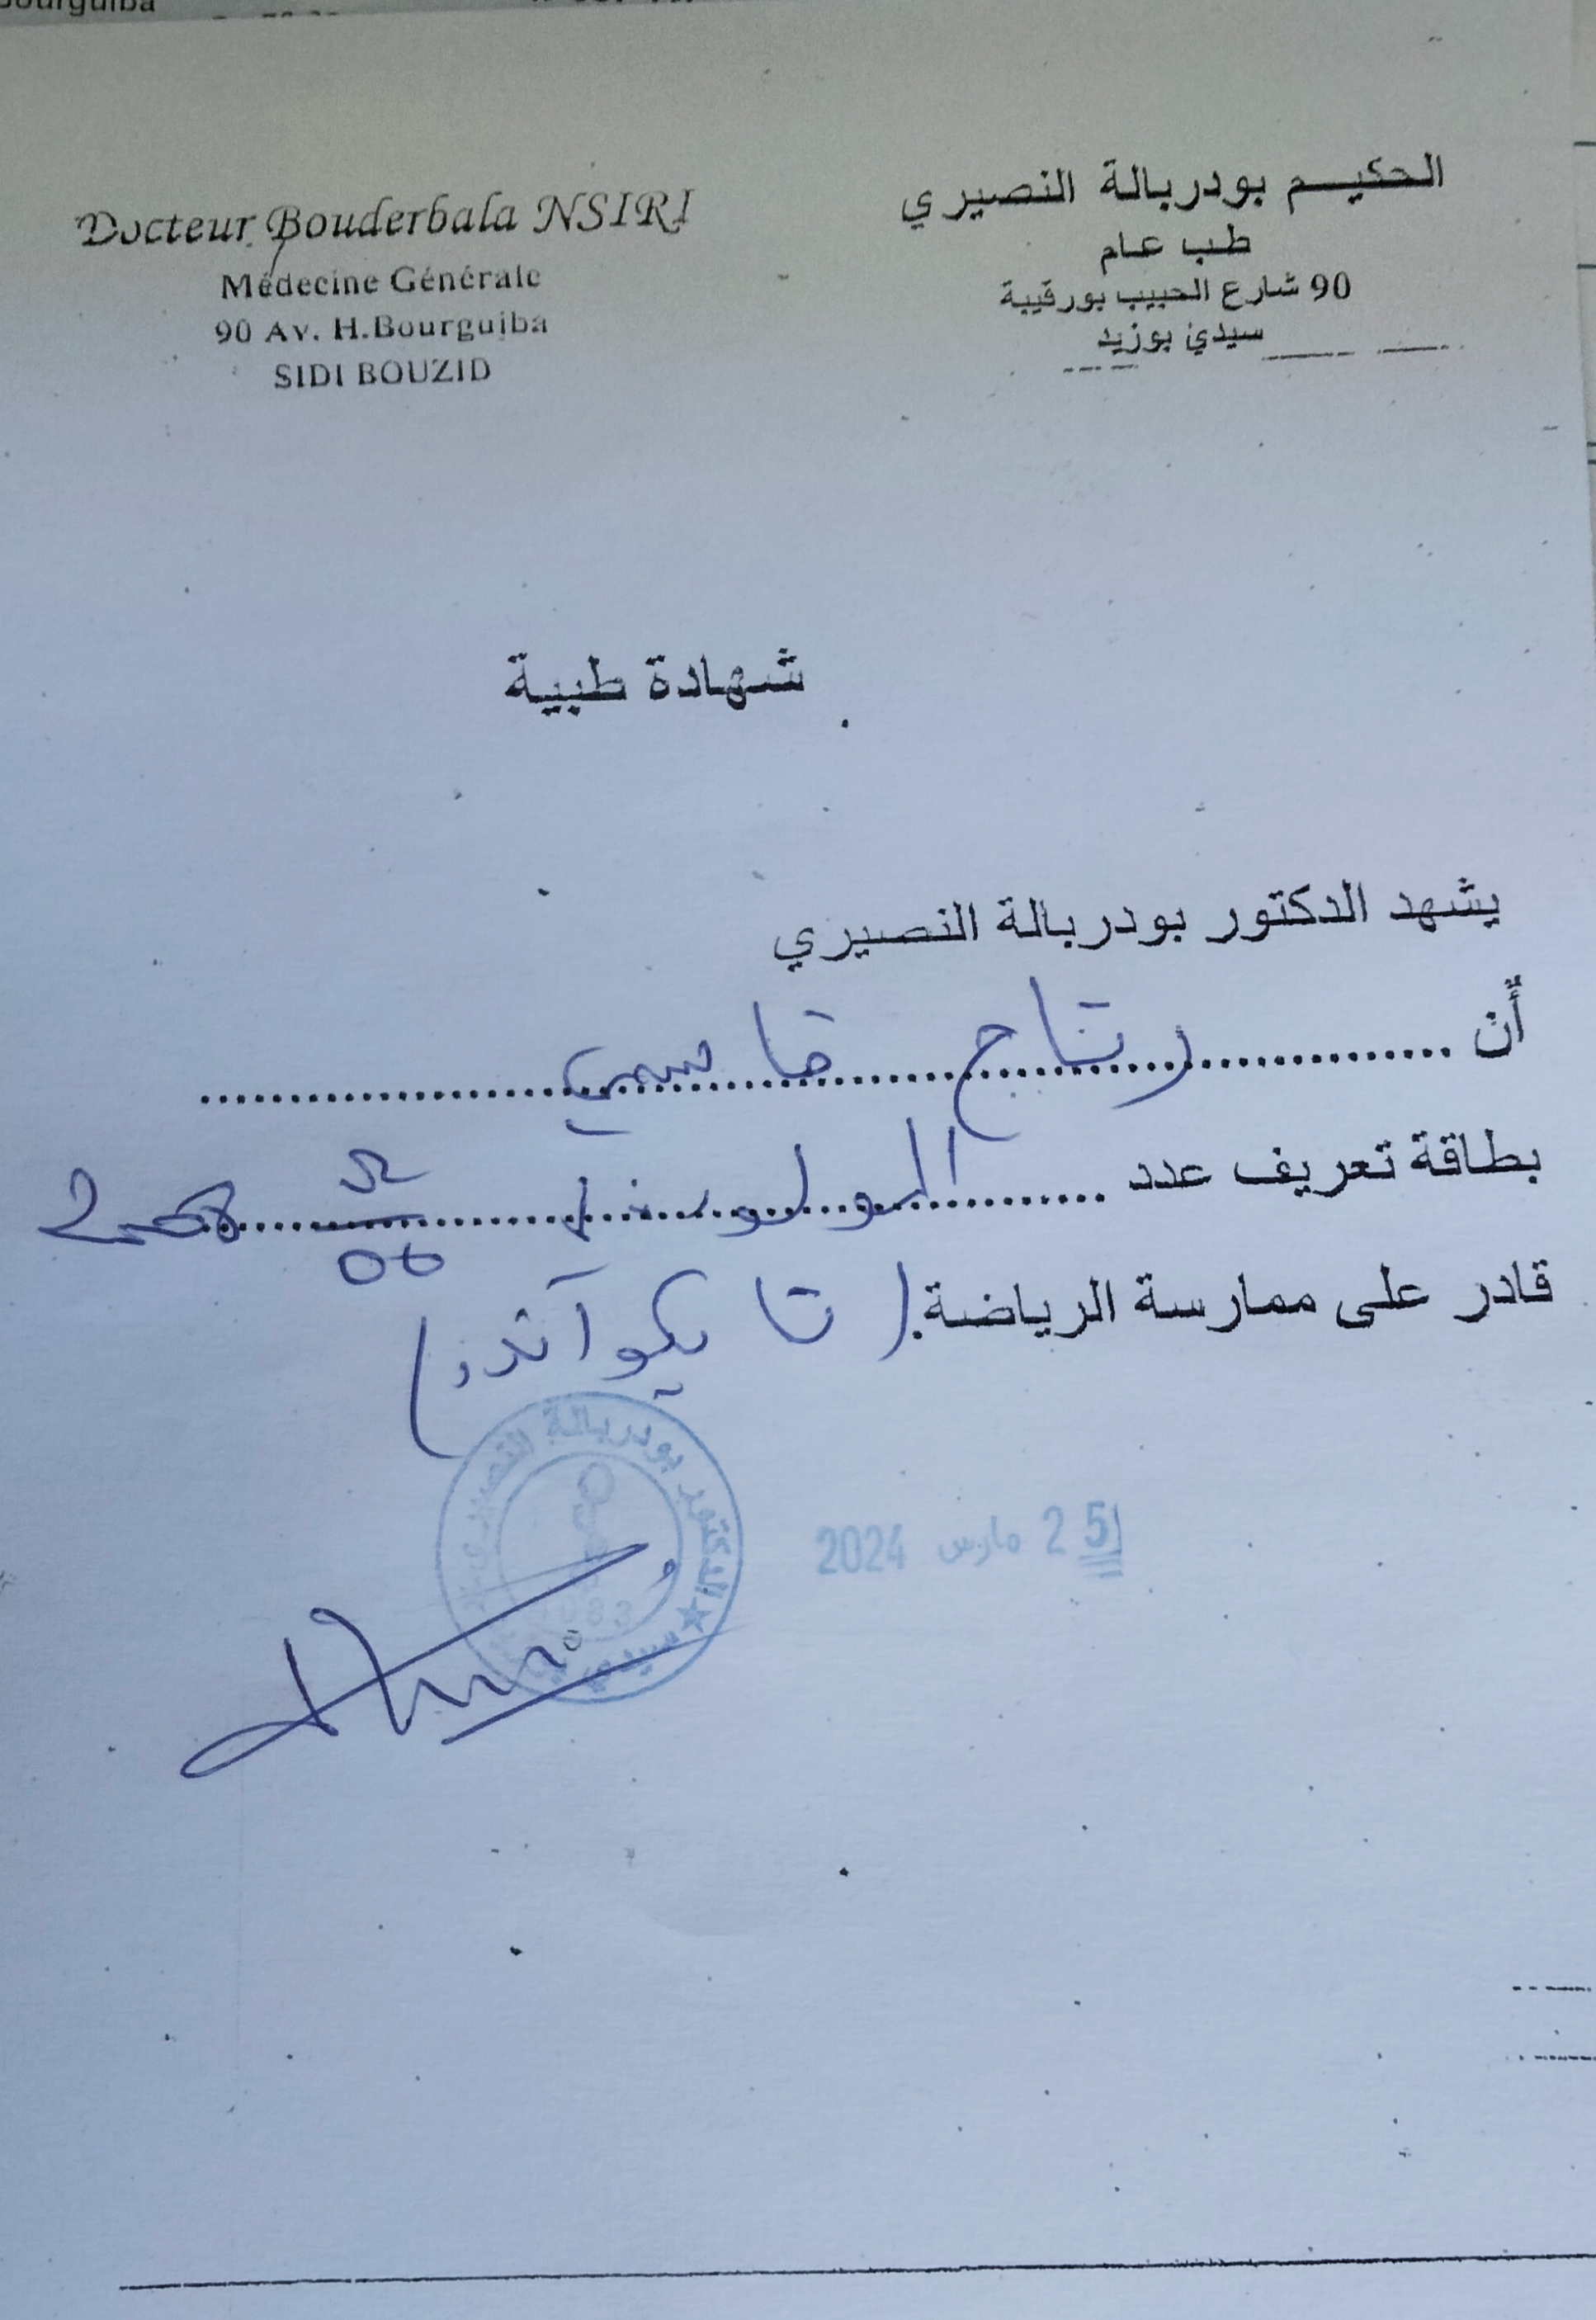 Bourguiba
Docteur Bouderbala NSIRI
Médecine Générale
90 Av. H.Bourguiba
SIDI BOUZID
الحكيم بودربالة النصيري
طب عام
90 شارع الحبيب بورقيبة
سيدي بوزيد
شهادة طبية
يشهد الدكتور بودربالة النصيري
أن ........ رتاج قاسمي ........
بطاقة تعريف عدد ........
قادر على ممارسة الرياضة. ( تايكوآندو )
25 مارس 2024
الدكتور بودربالة النصيري
سيدي